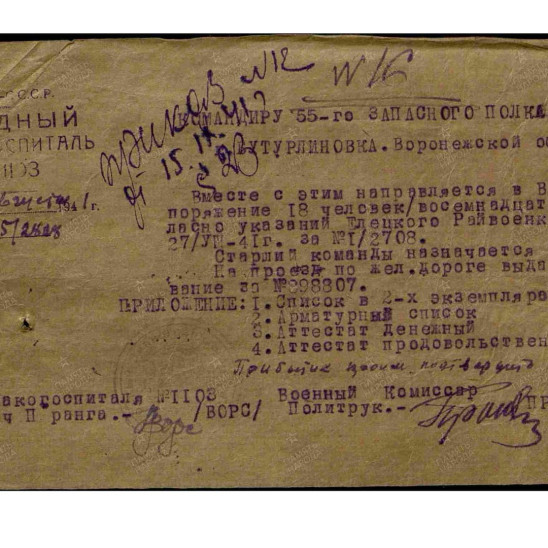 С.С.Р.
ДНЫЙ
ОСПИТАЛЬ
1103
августа 1941 г.
приказ N12
NК
КОМАНДИРУ 55-го ЗАПАСНОГО ПОЛКА
БУТУРЛИНОВКА. Воронежской об
Вместе с этим направляется в В
поряжение 18 человек/восемнадцат
ласно указаний Елецкого Райвоенк
27/УШ-41г. за №1/2708.
Старший команды назначается
На проезд по жел.дороге выда
вание за №298807.
ПРИЛОЖЕНИЕ: 1. Список в 2-х экземпляра
2. Арматурный список
3. Аттестат денежный
4. Аттестат продовольствен
Прибытие просим подтвердить
акогоспиталя №1103 Военный Комиссар
ч II ранга.- /ВОРС/ Политрук.- ПР
Ворс